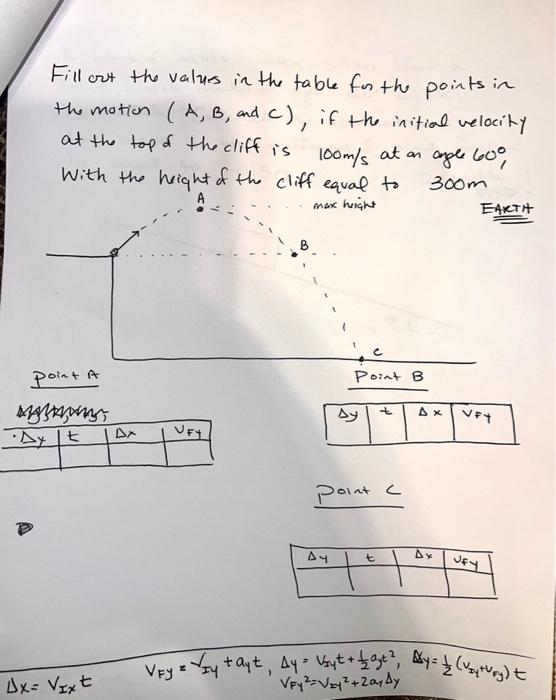 Fill out the values in the table for the points in
the motion (A, B, and C), if the initial velocity
at the top of the cliff is 100m/s at an angle 60°,
With the height of the cliff equal to 300m
A
max height
EARTH
B
C
Point A
Point B
Δy t Δx VFy
Δy t Δx VFy
Point C
Δy t Δx VFy
Δx = VIx t
VFy = VIy + ayt, Δy = VIyt + ½ayt², Δy = ½(VIy+VFy)t
VFy² = VIy² + 2ayΔy